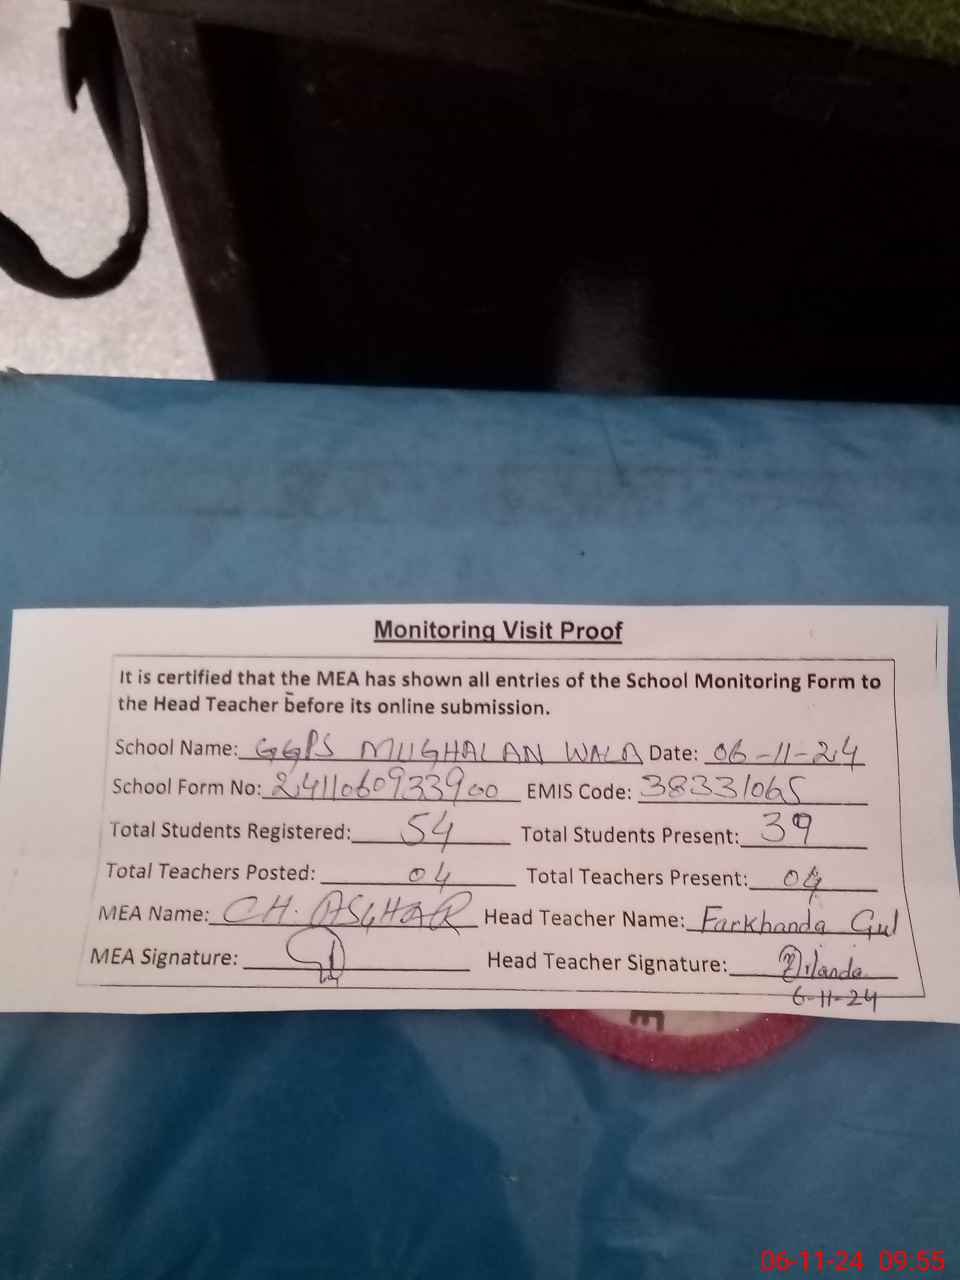 Monitoring Visit Proof
It is certified that the MEA has shown all entries of the School Monitoring Form to
the Head Teacher before its online submission.
School Name: GGPS MUGHALAN WALA Date: 06-11-24
School Form No: 2411060933900 EMIS Code: 38331065
Total Students Registered: 54 Total Students Present: 39
Total Teachers Posted: 04 Total Teachers Present: 04
MEA Name: CH. ASGHAR Head Teacher Name: Farkhanda Gul
MEA Signature: Head Teacher Signature:
6-11-24
E
06-11-24 09:55